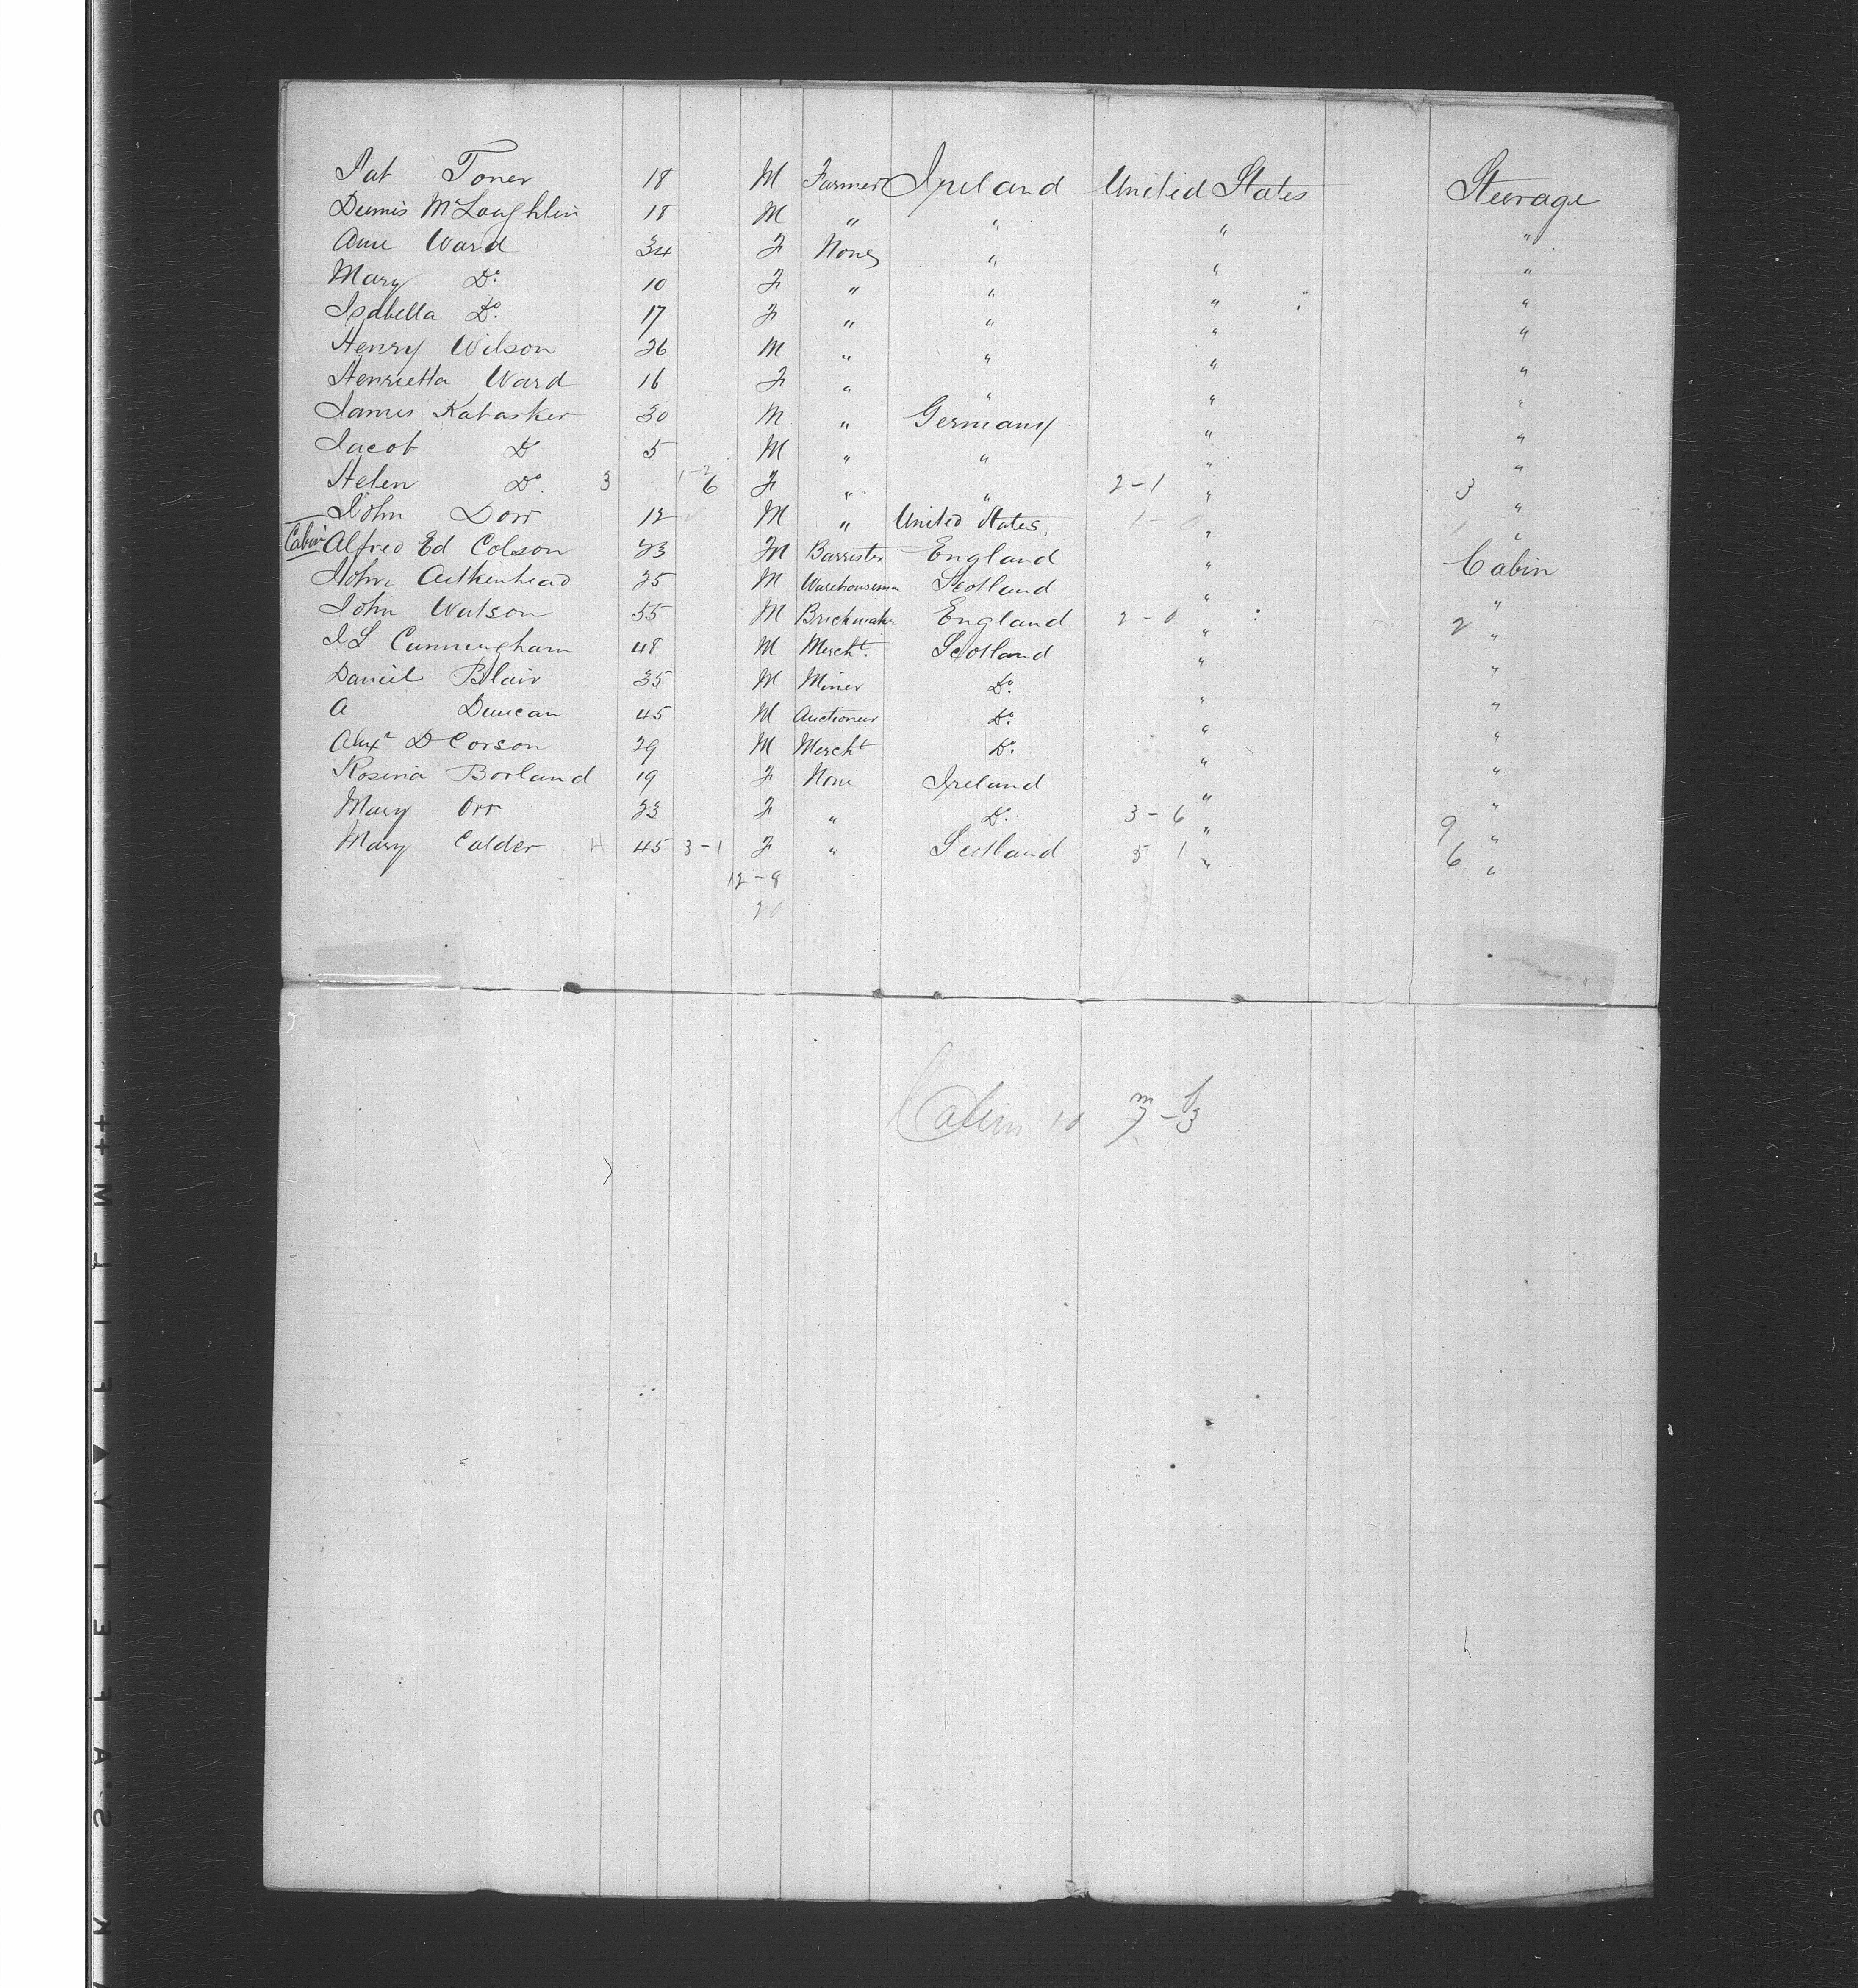 Pat Toner 18 M Farmer Ireland United States Steerage
Dennis McLoughlin 18 M " " " "
Ann Ward 34 F None " " "
Mary Do. 10 F " " " "
Isabella Do. 17 F " " " "
Henry Wilson 26 M " " " "
Henrietta Ward 16 F " " " "
James Kabasker 30 M " Germany " "
Jacob Do 5 M " " " "
Helen Do. 3 1-2 6 F " " 2-1 " 3 "
John Dorr 12 M " United States 1-0 " 1 "
Cabin Alfred Ed Colson 23 M Barrister England " Cabin
John Aitkenhead 25 M Warehouseman Scotland " "
John Watson 55 M Brickmaker England 2-0 " 2 "
J L Cunningham 48 M Mercht. Scotland " "
Daniel Blair 35 M Miner Do. " "
A Duncan 45 M Auctioneer Do. " "
Alexr D Corson 29 M Mercht Do. " "
Rosina Borland 19 F None Ireland " "
Mary Orr 23 F " Do. 3-6 " 9 "
Mary Calder H 45 3-1 F " Scotland 5 1 " 6 "
12-8
20
Cabin 10 m 7 - f 3